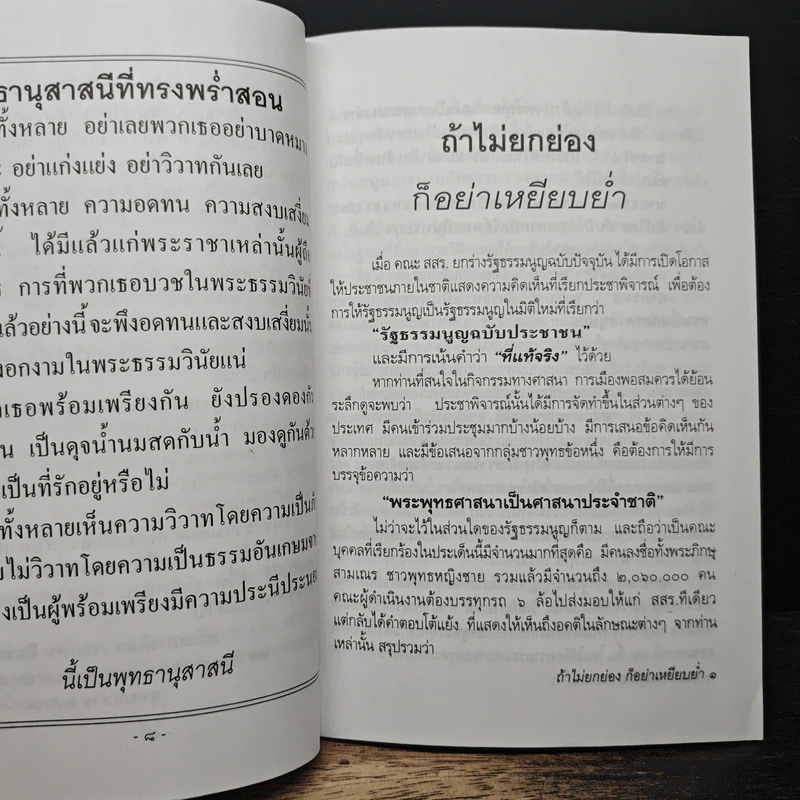 ธานุสาสนีที่ทรงพร่ำสอน
ทั้งหลาย อย่าเลยพวกเธออย่าบาดหมาง
อย่าแก่งแย่ง อย่าวิวาทกันเลย
ทั้งหลาย ความอดทน ความสงบเสงี่ยม
ได้มีแล้วแก่พระราชาเหล่านั้นผู้ถือ
การที่พวกเธอบวชในพระธรรมวินัยที่
แล้วอย่างนี้ จะพึงอดทนและสงบเสงี่ยมนั้น
งอกงามในพระธรรมวินัยแน่
เธอพร้อมเพรียงกัน ยังปรองดองกัน
น เป็นดุจน้ำนมสดกับน้ำ มองดูกันด้วย
เป็นที่รักอยู่หรือไม่
ทั้งหลายเห็นความวิวาทโดยความเป็นภัย
ไม่วิวาทโดยความเป็นธรรมอันเกษมจาก
งเป็นผู้พร้อมเพรียงมีความประนีประนอม
นี้เป็นพุทธานุสาสนี
- ๘ -
ถ้าไม่ยกย่อง
ก็อย่าเหยียบย่ำ
เมื่อ คณะ สสร. ยกร่างรัฐธรรมนูญฉบับปัจจุบัน ได้มีการเปิดโอกาส
ให้ประชาชนภายในชาติแสดงความคิดเห็นที่เรียกประชาพิจารณ์ เพื่อต้อง
การให้รัฐธรรมนูญเป็นรัฐธรรมนูญในมิติใหม่ที่เรียกว่า
“รัฐธรรมนูญฉบับประชาชน”
และมีการเน้นคำว่า “ที่แท้จริง” ไว้ด้วย
หากท่านที่สนใจในกิจกรรมทางศาสนา การเมืองพอสมควรได้ย้อน
ระลึกดูจะพบว่า ประชาพิจารณ์นั้นได้มีการจัดทำขึ้นในส่วนต่างๆ ของ
ประเทศ มีคนเข้าร่วมประชุมมากบ้างน้อยบ้าง มีการเสนอข้อคิดเห็นกัน
หลากหลาย และมีข้อเสนอจากกลุ่มชาวพุทธข้อหนึ่ง คือต้องการให้มีการ
บรรจุข้อความว่า
“พระพุทธศาสนาเป็นศาสนาประจำชาติ”
ไม่ว่าจะไว้ในส่วนใดของรัฐธรรมนูญก็ตาม และถือว่าเป็นคณะ
บุคคลที่เรียกร้องในประเด็นนี้มีจำนวนมากที่สุดคือ มีคนลงชื่อทั้งพระภิกษุ
สามเณร ชาวพุทธหญิงชาย รวมแล้วมีจำนวนถึง ๒,๐๖๐,๐๐๐ คน
คณะผู้ดำเนินงานต้องบรรทุกรถ ๖ ล้อไปส่งมอบให้แก่ สสร.ทีเดียว
แต่กลับได้คำตอบโต้แย้ง ที่แสดงให้เห็นถึงอคติในลักษณะต่างๆ จากท่าน
เหล่านั้น สรุปรวมว่า
ถ้าไม่ยกย่อง ก็อย่าเหยียบย่ำ ๑